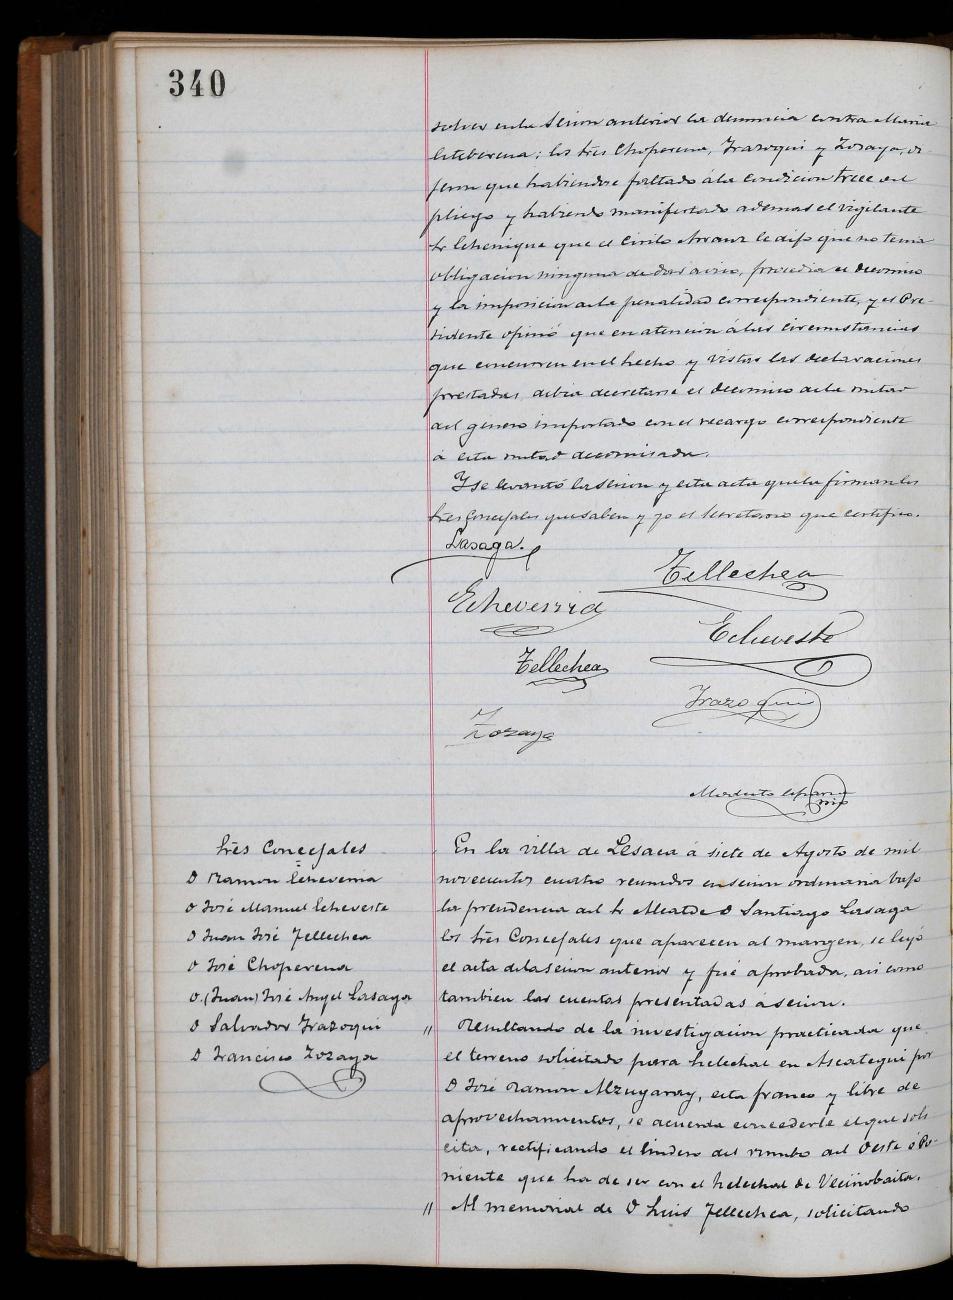 340
solver en la sesion anterior la denuncia contra Maria
Echeberena; los Sres Choperena, Irazoqui y Zozaya, di-
jeron que habiendose faltado á la condicion trece del
pliego y habiendo manifestado ademas el vigilante
Sr Echenique que el Cirilo Arranz le dijo que no tenia
obligacion ninguna de dar aviso, procedia el decomiso
y la imposicion de la penalidad correspondiente, y el Pre-
sidente opinó que en atencion á las circunstancias
que concurren en el hecho y vistas las declaraciones
prestadas, debia decretarse el decomiso de la mitad
del género importado con el recargo correspondiente
á esta mitad decomisada.
Y se levantó la sesion y esta acta que la firman los
Sres Concejales que saben y yo el Secretario que certifico.
Lasaga.
Tellechea
Echeverria
Echeveste
Tellechea
Irazoqui
Zozaya
Modesto
Sres Concejales
D Ramon Echeverria
D José Manuel Echeveste
D Juan José Tellechea
D José Choperena
D. (Juan) José Angel Lasaga
D Salvador Irazoqui
D Francisco Zozaya
En la villa de Lesaca á siete de Agosto de mil
novecientos cuatro reunidos en sesion ordinaria bajo
la presidencia del Sr Alcalde D Santiago Lasaga
los Sres Concejales que aparecen al margen, se leyó
el acta de la sesion anterior y fué aprobada, asi como
tambien las cuentas presentadas á sesion.
" Resultando de la investigacion practicada que
el terreno solicitado para helechal en Ascategui por
D José Ramon Alzugaray, esta franco y libre de
aprovechamientos, se acuerda concederle el que soli
cita, rectificando el lindero del rumbo del Oeste ó Po-
niente que ha de ser con el helechal de Vecinobaita.
" Al memorial de D Luis Tellechea, solicitando